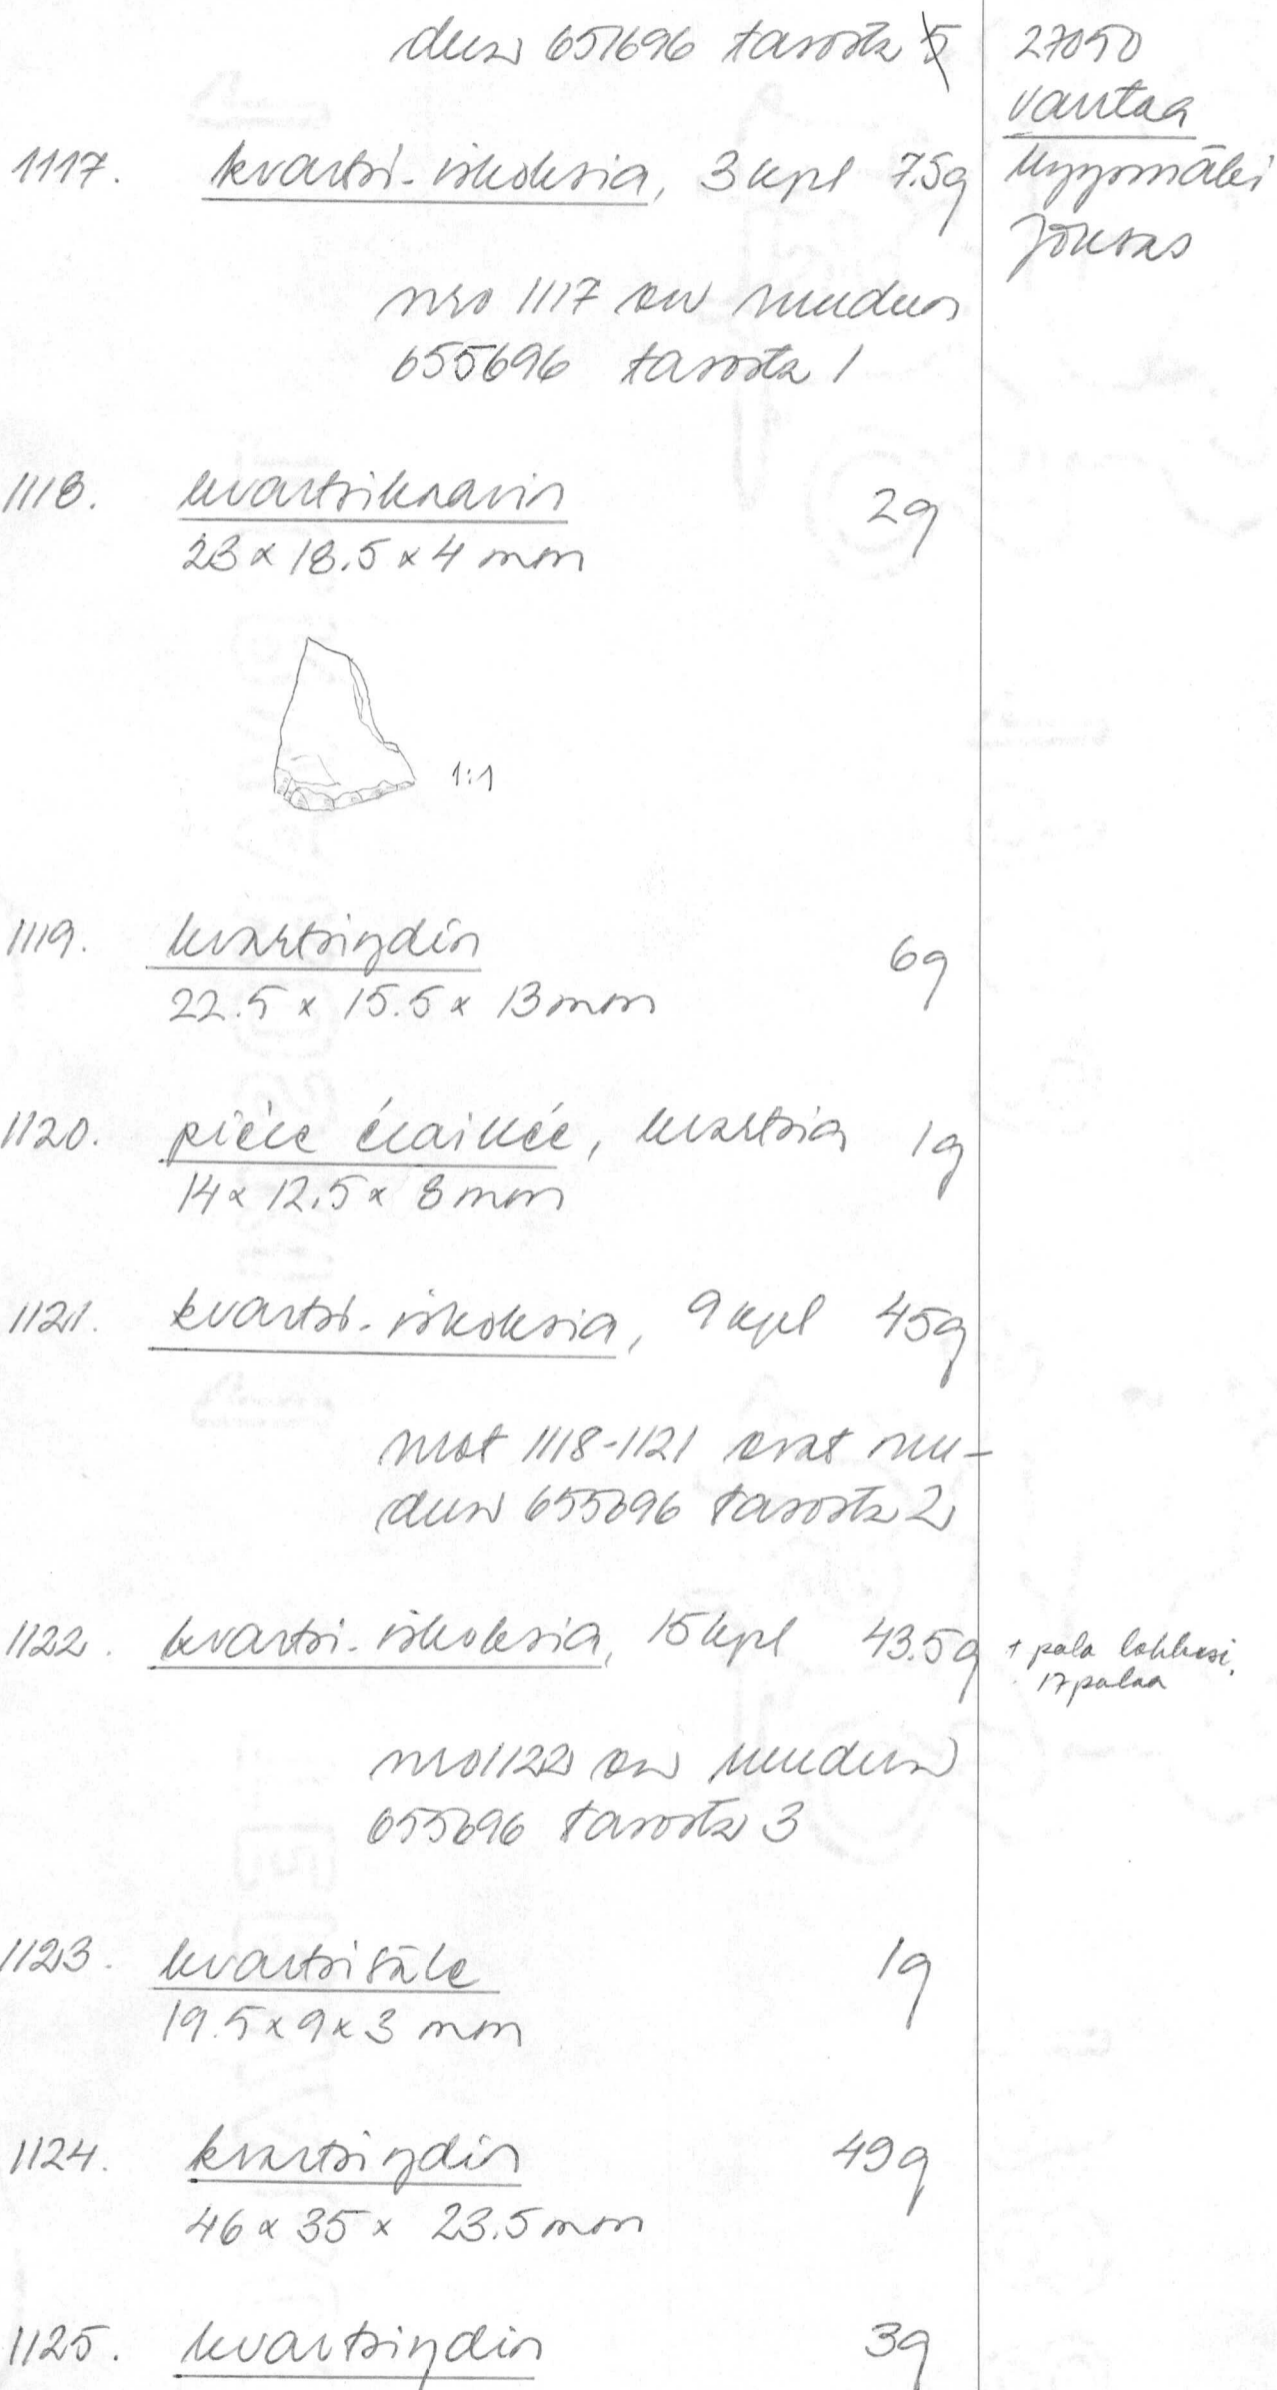 dun 651696 tasosta 5
27050
Vantaa
Myyrmäki
Jönsas
1117. kvartsi-iskoksia, 3 kpl 7.5g
nro 1117 on ruudun
655696 tasosta 1
1118. kvartsikaavin 2g
23 x 18.5 x 4 mm
1:1
1119. kvartsiydin 6g
22.5 x 15.5 x 13 mm
1120. pièce écaillée, kvartsia 1g
14 x 12.5 x 8 mm
1121. kvartsi-iskoksia, 9 kpl 45g
nrot 1118-1121 ovat ruu-
dun 655696 tasosta 2
1122. kvartsi-iskoksia, 15 kpl 43.5g
+ pala lohkesi.
17 palaa
nro 1122 on ruudun
655696 tasosta 3
1123. kvartsisäle 1g
19.5 x 9 x 3 mm
1124. kvartsiydin 49g
46 x 35 x 23.5 mm
1125. kvartsiydin 3g